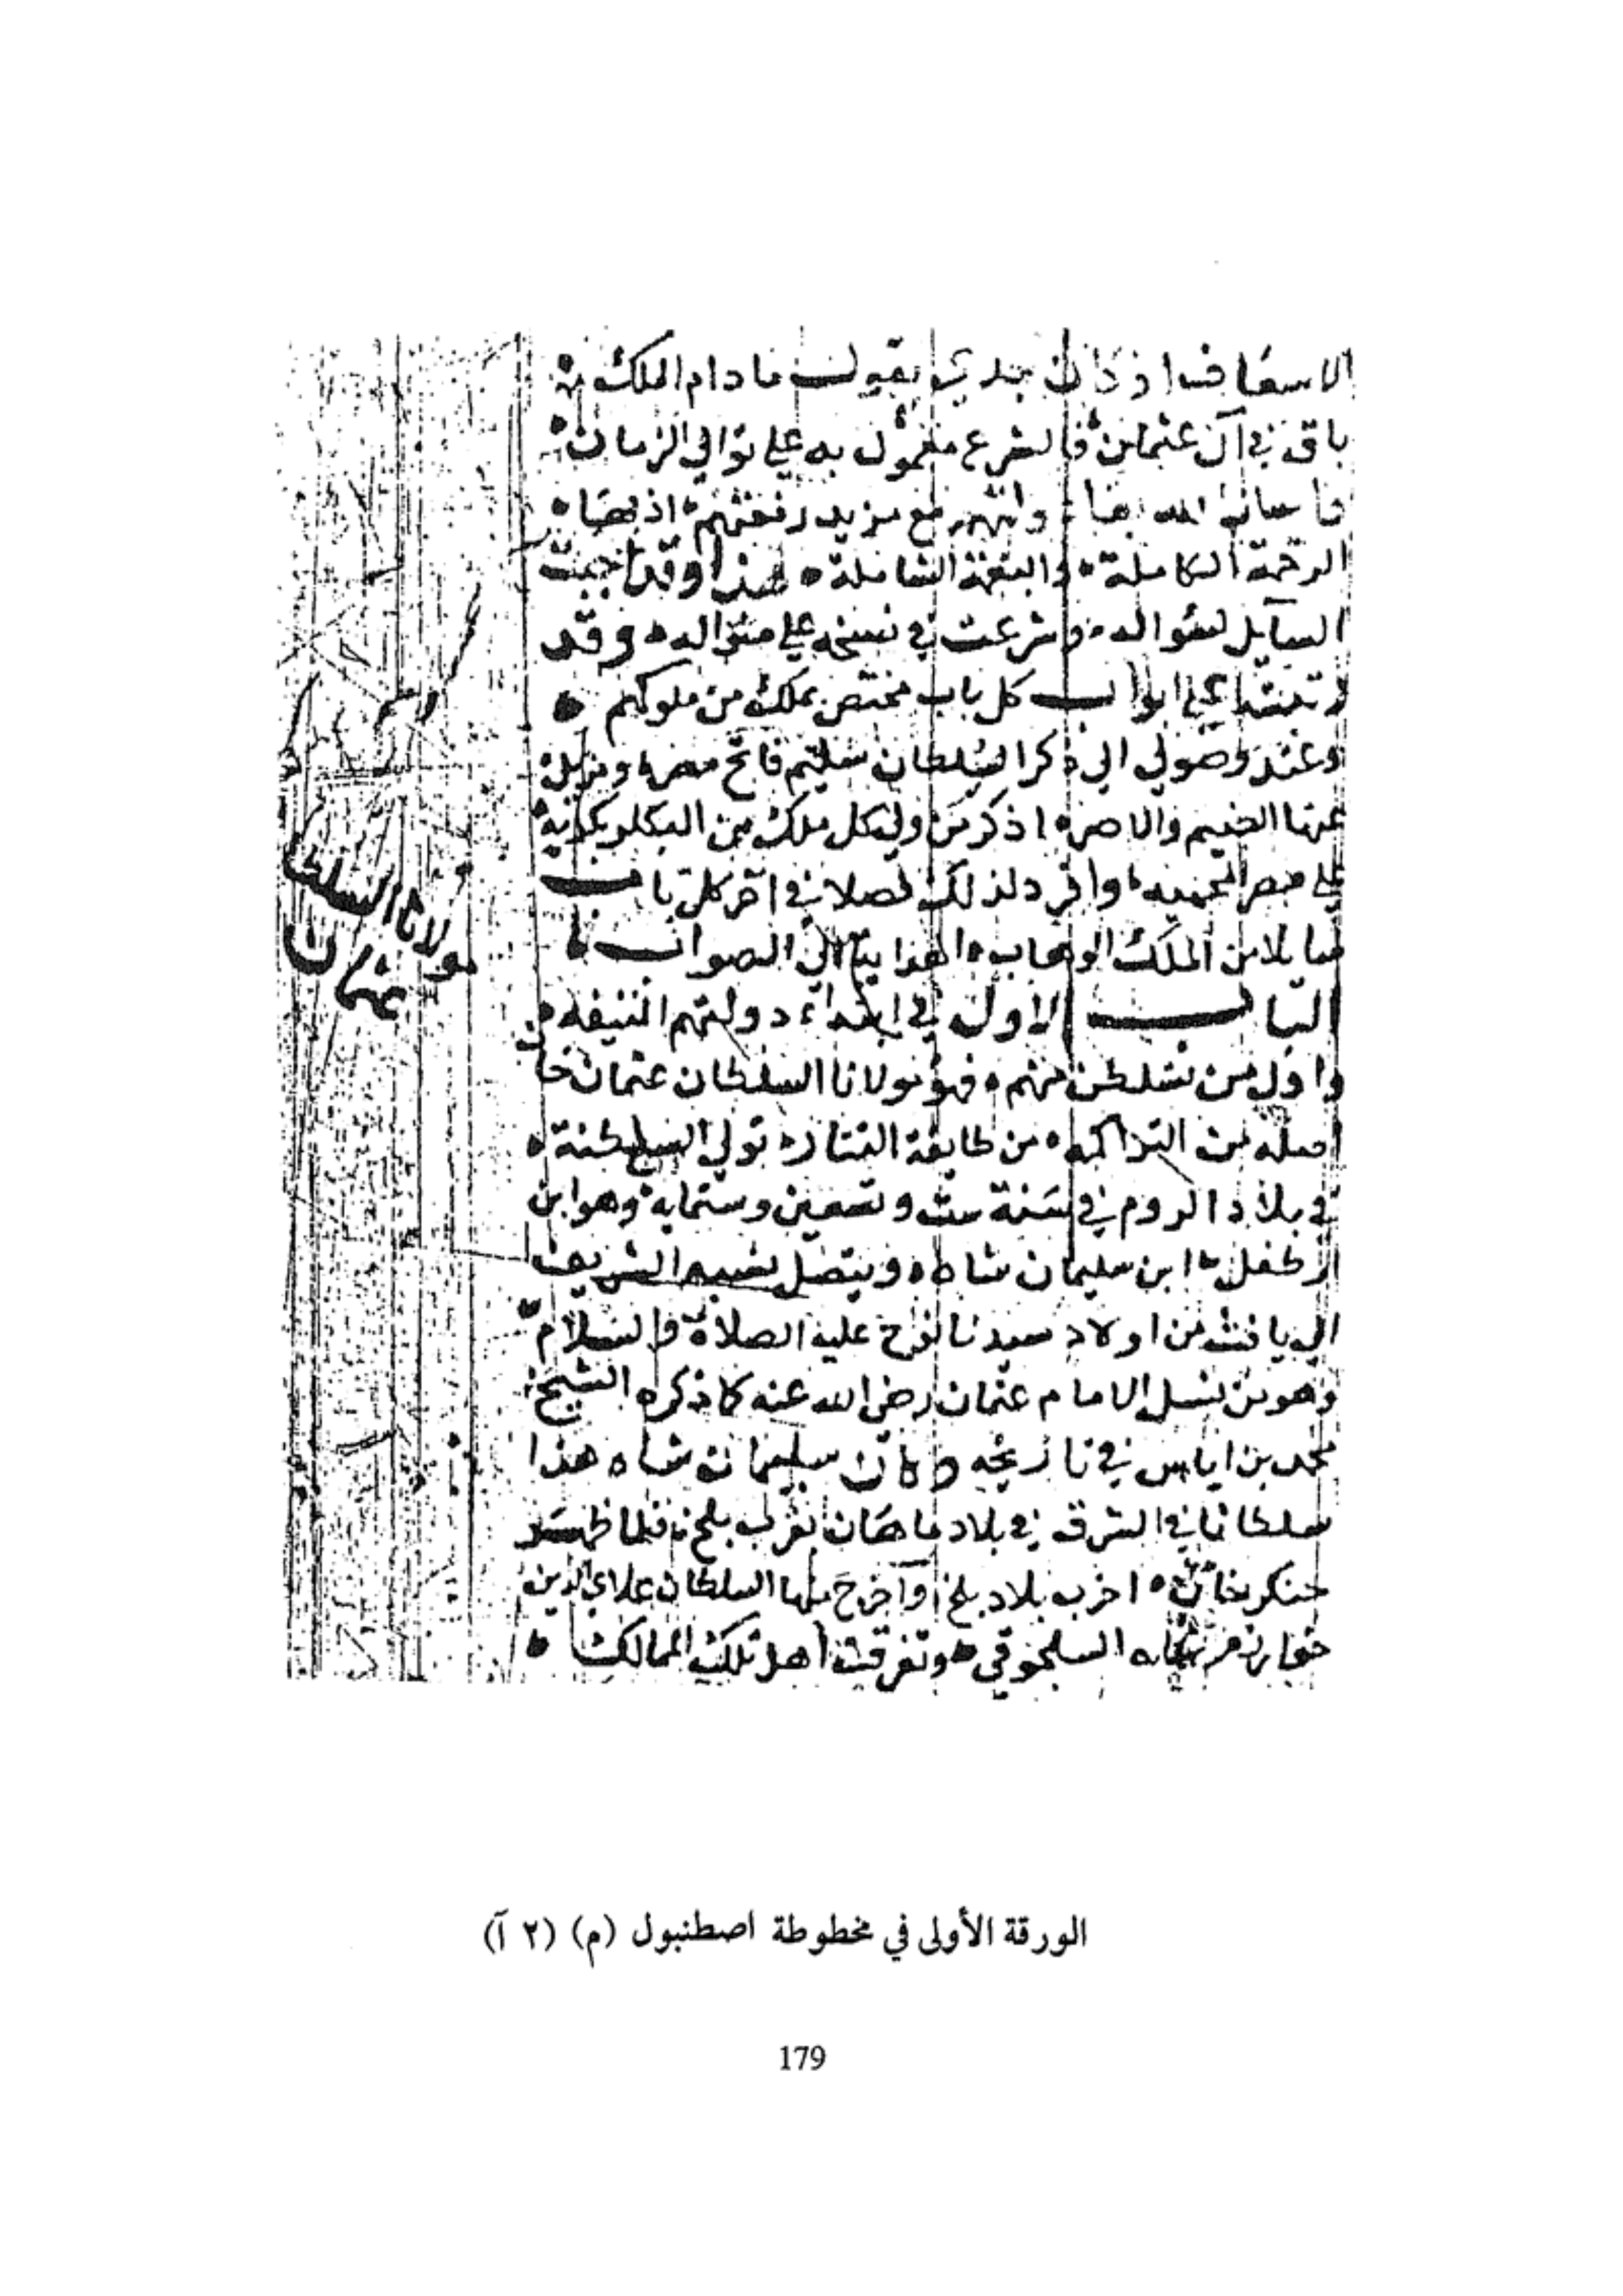 الاسعاف اذ كان جدي يقول ما دام الملك
باقي في آل عثمان فالشرع معمول به على توالي الزمان
وانتهم مع مزيد رفعتهم اذ بها
الرحمة الكاملة والنعمة الشاملة هذا وقد اجبت
السايل لسؤاله وشرعت في نسخه على منواله وقد
رتبته على ابواب كل باب مختص بملك من ملوكهم
وعند وصولي الى ذكر السلطان سليم فاتح مصر ومزيل
عنها الضيم والاصر اذكر من ولي كل ملك من البكلربكية
على مصر المحمية وافرد لذلك فصلا في آخر كل باب
سايلا من الملك الوهاب الهداية الى الصواب
الباب الاول في ابتداء دولتهم المنيفه
واول من تسلطن منهم فهو مولانا السلطان عثمان خان
اصله من التراكمه من طايفة التتار تولي السلطنة
في بلاد الروم في سنة ست وتسعين وستماية وهو ابن
ارطغل ابن سليمان شاه ويتصل نسبه الشريف
الى يافث من اولاد سيدنا نوح عليه الصلاة والسلام
وهو من نسل الامام عثمان رضي الله عنه كما ذكره الشيخ
محمد بن اياس في تاريخه وكان سليمان شاه هذا
سلطانا في الشرق في بلاد ماهان بقرب بلخ فلما ظهر
جنكرخان اخرب بلاد بلخ واخرج منها السلطان علاي الدين
خوارزم شاه السلجوقي وتفرقت اهل تلك الممالك
مولانا السلطا
عثمان
الورقة الأولى في مخطوطة اصطنبول (م) (٢ آ)
179